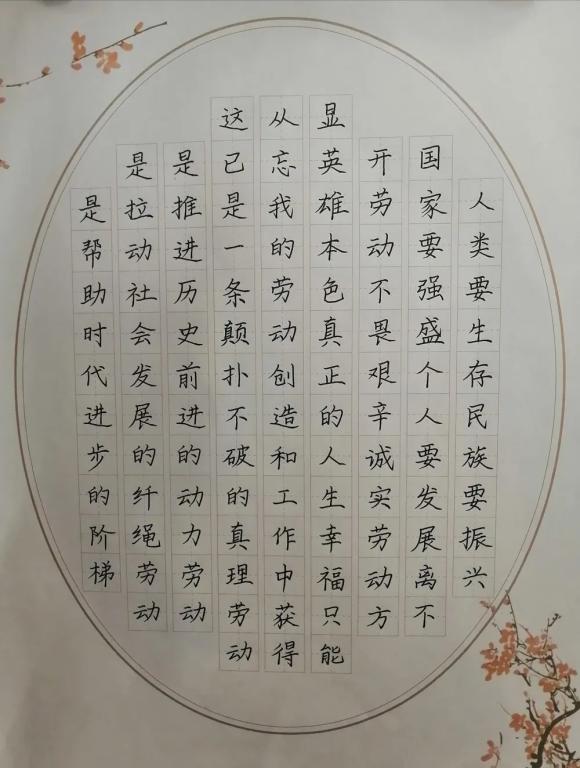 人类要生存民族要振兴
国家要强盛个人要发展离不
开劳动不畏艰辛诚实劳动方
显英雄本色真正的人生幸福只能
从忘我的劳动创造和工作中获得
这已是一条颠扑不破的真理劳动
是推进历史前进的动力劳动
是拉动社会发展的纤绳劳动
是帮助时代进步的阶梯